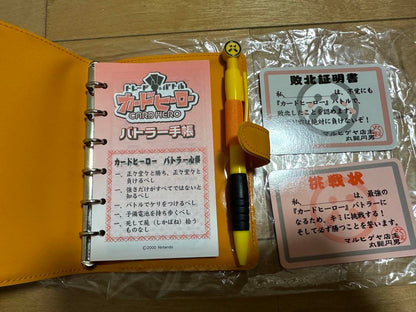 トレード&バトル
カードヒーロー
CARD HERO
バトラー手帳
カードヒーロー バトラー心得
一、正々堂々と勝ち、正々堂々と
負けるべし
一、強さだけがすべてではないと
知るべし
一、バトルでケリをつけるべし
一、予備電池を持ち歩くべし
一、死して屍(しかばね)拾う
ものなし
©2000 Nintendo
敗北証明書
私 は、不覚にも
『カードヒーロー』バトルで、
敗北したことを認めます。
は絶対に負けないぞ!
マルヒゲヤ店主
丸髭円男
挑戦状
私 は、最強の
『カードヒーロー』バトラーに
なるため、キミに挑戦する!
そして必ず勝つことを誓います。
マルヒゲヤ店主
丸髭円男